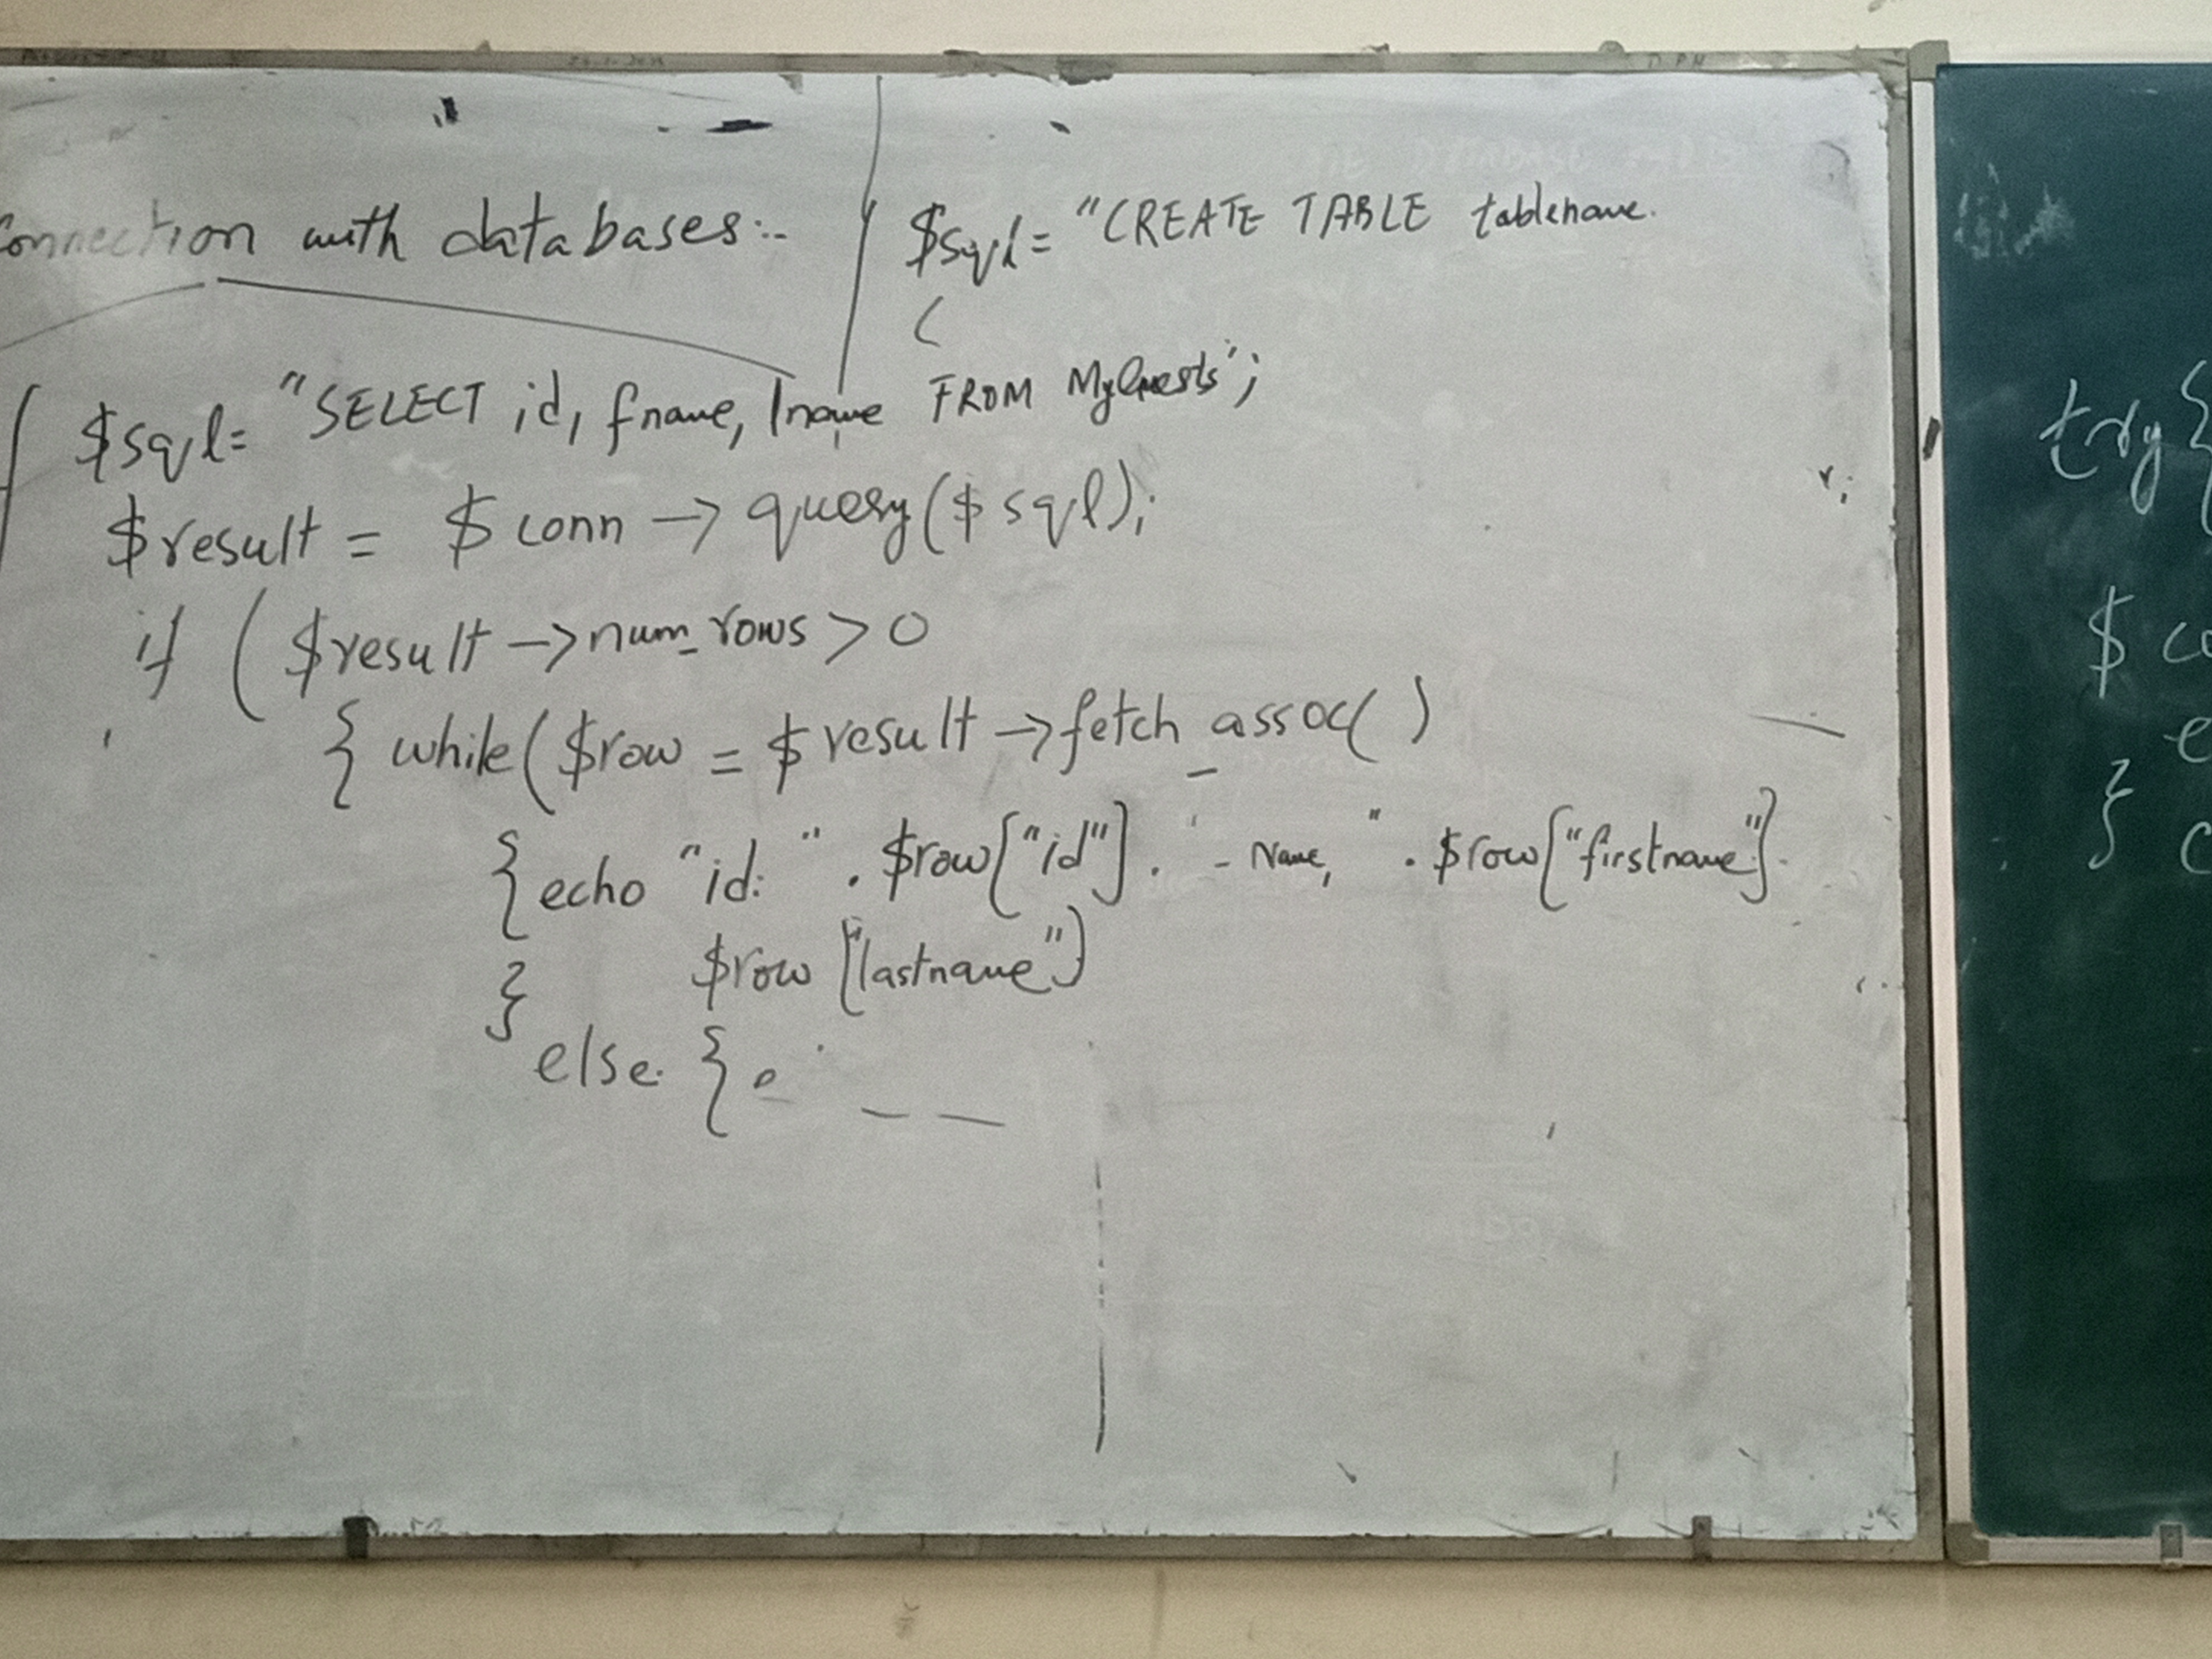 onnection with databases:-
$sql= "CREATE TABLE tablename.
(
$sql= "SELECT id, fname, lname FROM MyGuests";
$result = $conn -> query($sql);
if ( $result -> num_rows > 0
{ while( $row = $result -> fetch_assoc( )
{ echo "id: " . $row["id"] . " - Name, " . $row["firstname"].
} $row ["lastname"]
else {
try{
$ co
e
}
c